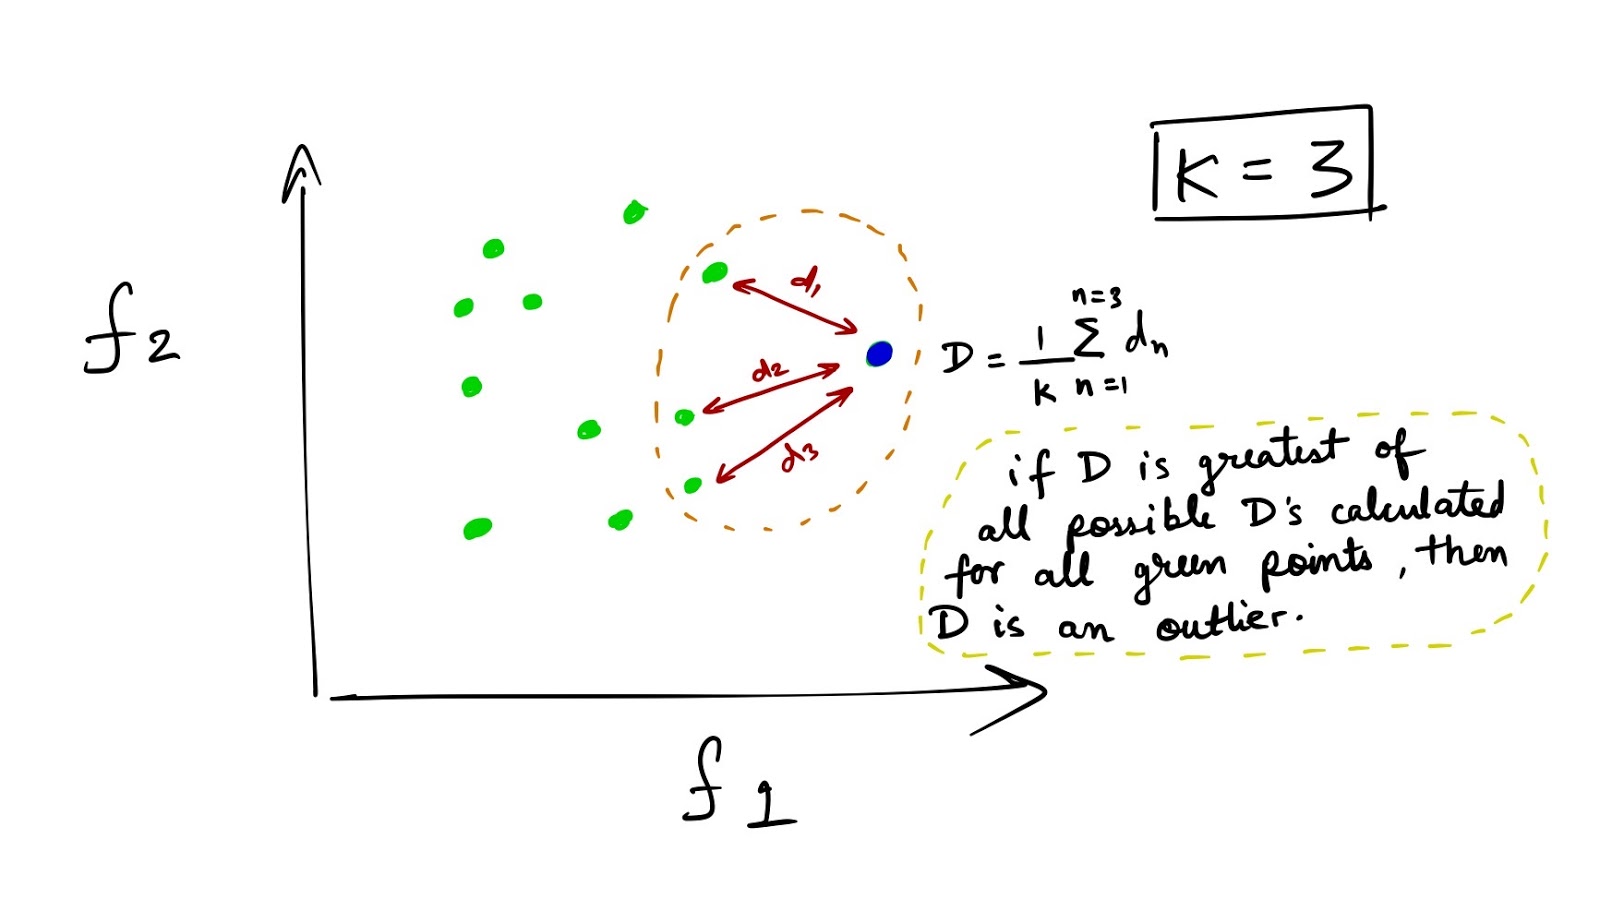 K = 3
f2
d1
d2
d3
D = 1/K n=3 Σ n=1 dn
if D is greatest of
all possible D's calculated
for all green points, then
D is an outlier.
f1